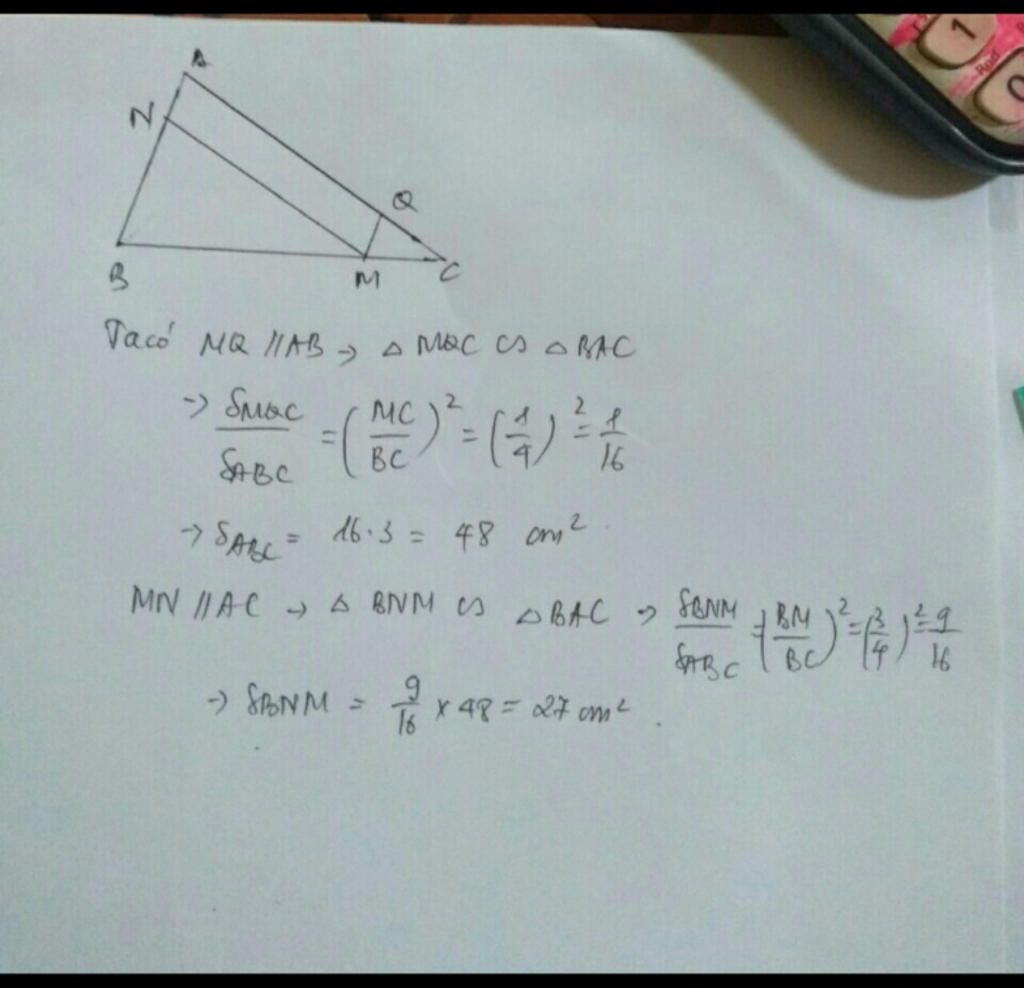 A
N
Q
B
M
C
Ta có MQ // AB → △ MQC ∽ △ BAC
→ SMQC / SABC = (MC/BC)² = (1/4)² = 1/16
→ SABC = 16.3 = 48 cm².
MN // AC → △ BNM ∽ △ BAC → SBNM / SABC = (BM/BC)² = (3/4)² = 9/16
→ SBNM = 9/16 × 48 = 27 cm².
1
Rad